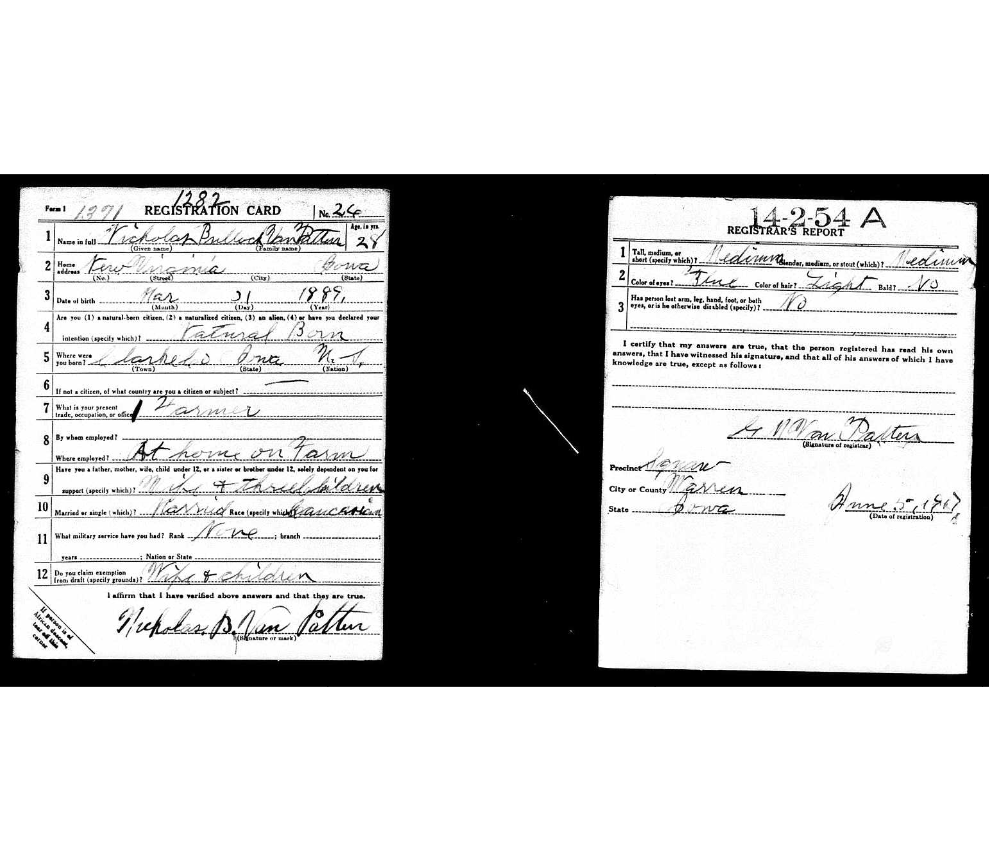 1282
Form 1 1371 REGISTRATION CARD No. 26
1 Name in full Nicholas Bullock Van Patten Age, in yrs. 28
(Given name) (Family name)
2 Home address New Virginia Iowa
(No.) (Street) (City) (State)
3 Date of birth Mar 31 1889,
(Month) (Day) (Year)
4 Are you (1) a natural-born citizen, (2) a naturalized citizen, (3) an alien, (4) or have you declared your
intention (specify which)? Natural Born
5 Where were you born? Iowa
(Town) (State) (Nation)
6 If not a citizen, of what country are you a citizen or subject?
7 What is your present trade, occupation, or office? Farmer
8 By whom employed?
Where employed? At home on Farm
9 Have you a father, mother, wife, child under 12, or a sister or brother under 12, solely dependent on you for
support (specify which)? Wife & three children
10 Married or single (which)? Married Race (specify which)? Caucasian
11 What military service have you had? Rank None ; branch ;
years ; Nation or State
12 Do you claim exemption from draft (specify grounds)? Wife & children
I affirm that I have verified above answers and that they are true.
Nicholas B. Van Patten
(Signature or mark)
If person is of
African descent,
tear off this
corner
14-2-54 A
REGISTRAR'S REPORT
1 Tall, medium, or short (specify which)? Medium Slender, medium, or stout (which)? Medium
2 Color of eyes? Blue Color of hair? Light Bald? No
3 Has person lost arm, leg, hand, foot, or both
eyes, or is he otherwise disabled (specify)? No
I certify that my answers are true, that the person registered has read his own
answers, that I have witnessed his signature, and that all of his answers of which I have
knowledge are true, except as follows:
Van Patten
(Signature of registrar)
Precinct Squaw
City or County Warren
State Iowa
June 5, 1917
(Date of registration)